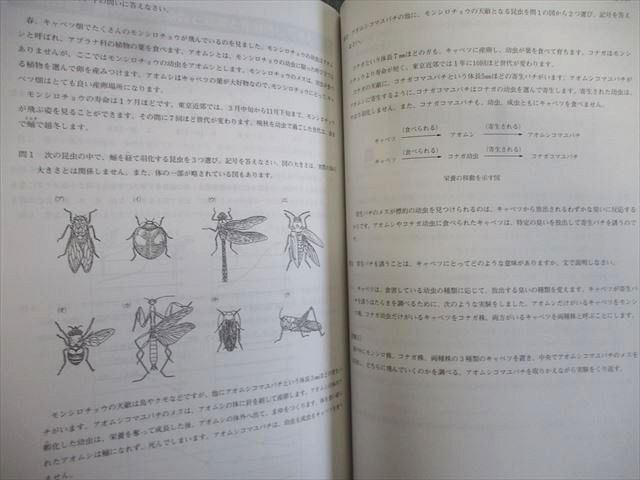 下の問いに答えなさい。
春、キャベツ畑でたくさんのモンシロチョウが飛んでいるのを見ました。モンシロチョウの幼虫はアオム
シと呼ばれ、アブラナ科の植物の葉を食べます。アオムシとは、モンシロチョウの幼虫に限った呼び方では
ありませんが、ここではモンシロチョウの幼虫をアオムシとします。モンシロチョウのメスは、幼虫が食べ
る植物を選んで卵を産みつけます。アオムシはキャベツの葉が大好物なので、モンシロチョウにとってキャ
ベツ畑はとても良い産卵場所になります。
モンシロチョウの寿命は1ヶ月ほどです。東京近郊では、3月中旬から11月下旬まで、モンシロチョウ
が飛ぶ姿を見ることができます。その間に7回ほど世代が変わります。晩秋を幼虫で過ごした世代は、
蛹で越冬します。
問1 次の昆虫の中で、蛹を経て羽化する昆虫を3つ選び、記号を答えなさい。図の大きさは、実際の
大きさとは関係しません。また、体の一部が略されている図もあります。
(ア) (イ) (ウ) (エ)
(オ) (カ) (キ) (ク)
モンシロチョウの天敵は鳥やクモなどですが、他にアオムシコマユバチという体長3mmほどの寄生バ
チがいます。アオムシコマユバチのメスは、アオムシの体に針を刺して産卵します。アオムシの体内で
孵化した幼虫は、栄養を奪って成長した後、アオムシの体外へ出て、まゆをつくります。体を
れたアオムシは蛹になれず、死んでしまいます。アオムシコマユバチは、幼虫も成虫もキャベツを食べ
ません。
問2 アオムシコマユバチの他に、モンシロチョウの天敵となる昆虫を問1の図から2つ選び、記号を答え
なさい。
コナガという体長7mmほどのガも、キャベツに産卵し、幼虫が葉を食べて育ちます。コナガはモンシロ
チョウより寿命が短く、東京近郊では1年に10回ほど世代が変わります。
コナガの天敵に、コナガコマユバチという体長5mmほどの寄生バチがいます。アオムシコマユバチが
アオムシに寄生するように、コナガコマユバチはコナガの幼虫を選んで寄生します。寄生された幼虫は、
やはり羽化しません。また、コナガコマユバチも、幼虫、成虫ともにキャベツを食べません。
(食べられる) (寄生される)
キャベツ アオムシ アオムシコマユバチ
(食べられる) (寄生される)
キャベツ コナガ幼虫 コナガコマユバチ
栄養の移動を示す図
寄生バチのメスが標的の幼虫を見つけられるのは、キャベツから放出されるわずかな臭いに反応する
からです。アオムシやコナガ幼虫に食べられたキャベツは、特定の臭いを放出して寄生バチを誘うので
す。
問3 寄生バチを誘うことは、キャベツにとってどのような意味がありますか。文で説明しなさい。
キャベツは、食害している幼虫の種類に応じて、放出する臭いの種類を変えます。キャベツが寄生バ
チを誘うはたらきを調べるために、次のような実験をしました。アオムシだけがいるキャベツをモンシ
ロ株、コナガ幼虫だけがいるキャベツをコナガ株、両方がいるキャベツを両種株と呼ぶことにします。
モンシロ株、コナガ株、両種株の3種類のキャベツを置き、中央でアオムシコマユバチのメスを
放し、どちらに飛んでいくのかを調べる。アオムシコマユバチを取りかえながら実験をくり返す。